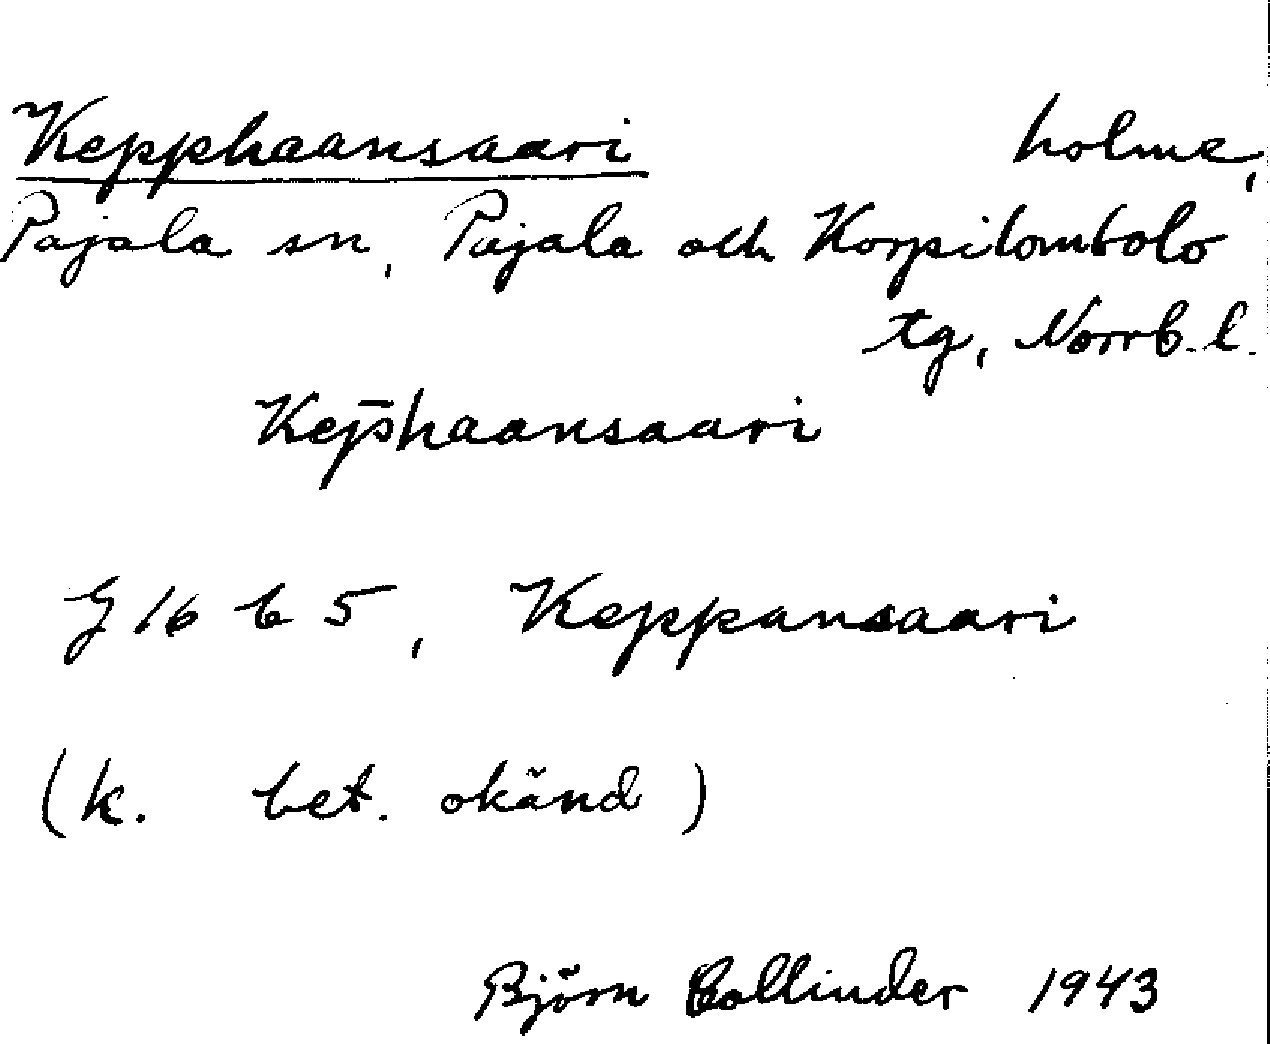 Kepphaansaari holme,
Pajala sn, Pajala och Korpilombolo
tg, Norrb. l.
Kep̄haansaari
G 16 b 5, Keppansaari
(k. bet. okänd)
Björn Collinder 1943